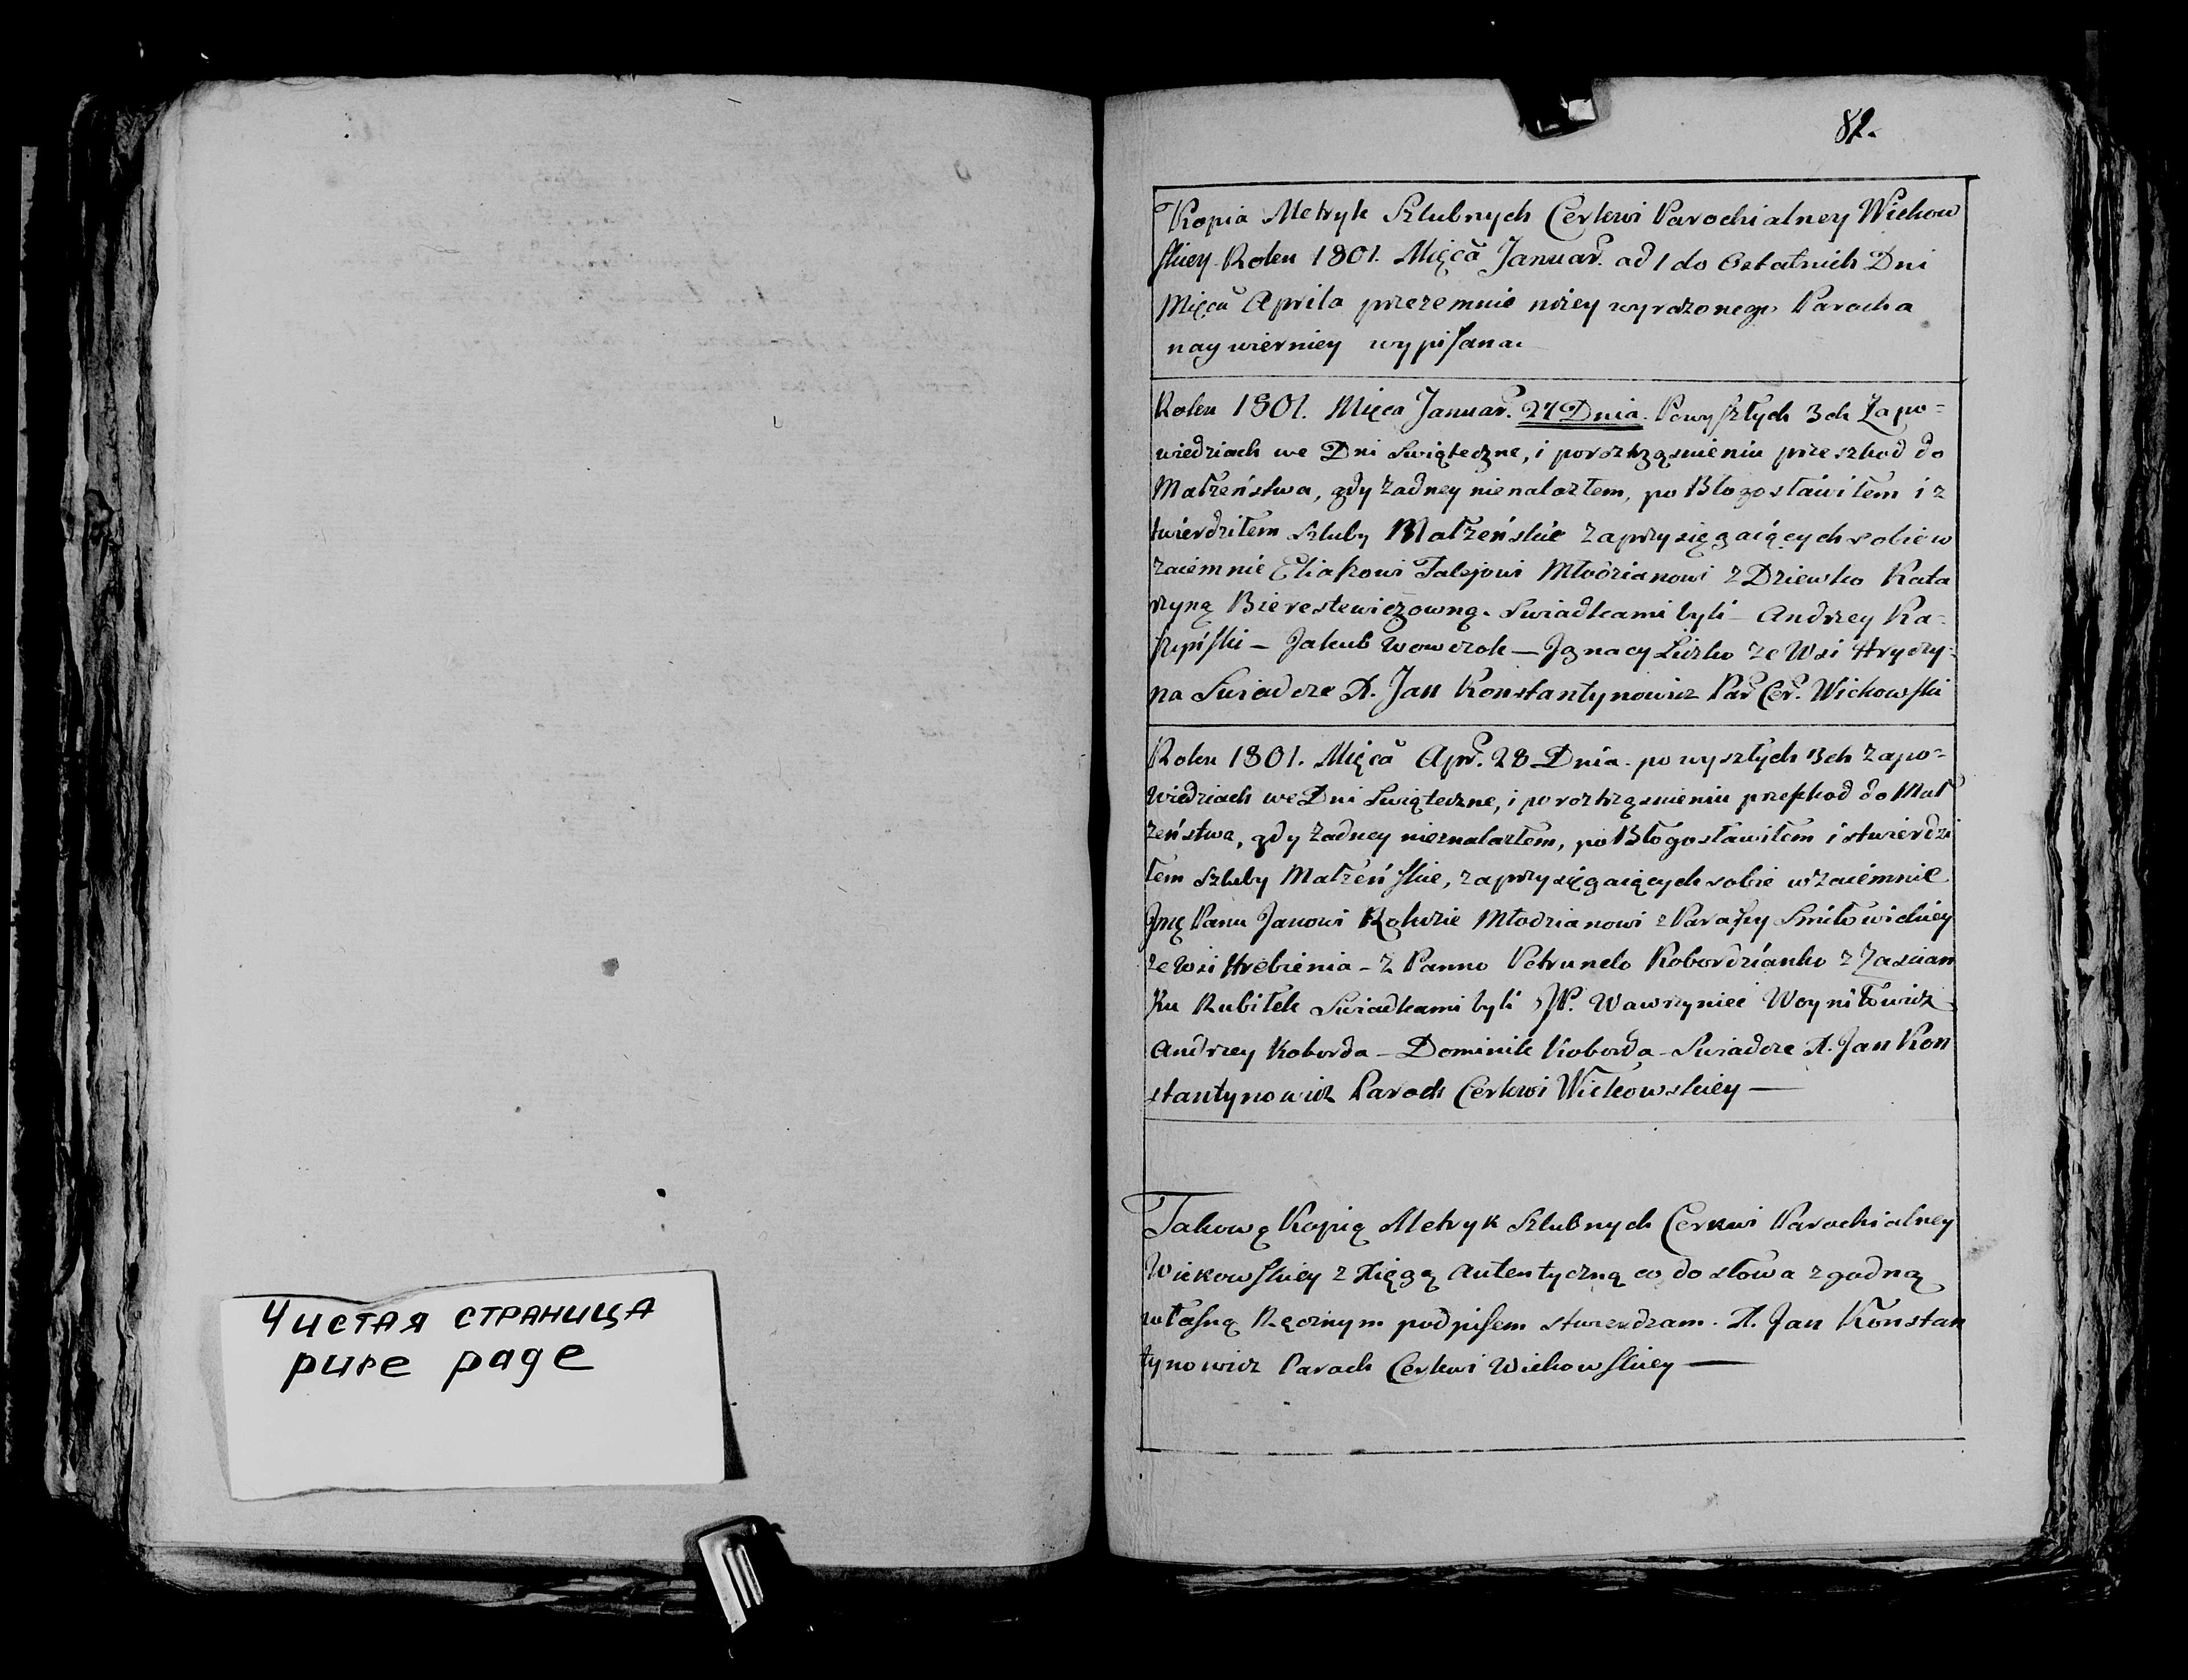 Чистая страница
pure page
82.
Kopia Metryk Szlubnych Cerkwi Parochialney Wickow
skiey Roku 1801. Mięca Januar. ad 1 do Ostatnich Dni
Mięca Aprila przezemnie niżey wyrażonego Parocha
naywierniey wypisana.
Roku 1801. Mięca Januar. 27 Dnia. Powyszłych 3ch Zapo=
wiedziach we Dni Swiąteczne, i poroztrząsnieniu przeszkod do
Małżeństwa, gdy żadney nienalazłem, po Błogosławiłem i z
twierdziłem szluby Małżeńskie zaprzysięgaiących sobie w
zaiemnie Młodzianowi z Dziewko Kata
rzyną Bierestewiczowną. Swiadkami byli – Andrzey Ka-
– Jakub Wowczok – Ignacy Liszko ze Wsi Hryczy-
na Swiadcze X. Jan Konstantynowicz Par. Cer. Wickowski
Roku 1801. Mięca Apr. 28 Dnia. po wyszłych 3ch zapo=
wiedziach we Dni Swiąteczne, i poroztrząsnieniu przeszkod do Mał
żeństwa, gdy żadney nieznalazłem, po Błogosławiłem i stwierdzi
łem szluby Małżeńskie, zaprzysięgaiących sobie wzaiemnie
Jmę Panu Janowi Młodzianowi z Parafiy Smiłowickiey
ze Wsi Hrebienia – z Panno Petrunelo Kobordzianko z Zascian
ku Kubiłek Swiadkami byli JP. Wawrzyniec Woyniłowicz
Andrzey Koborda – Dominik Koborda – Swiadcze X. Jan Kon
stantynowicz Paroch Cerkwi Wickowskiey —
Takową Kopią Metryk Szlubnych Cerkwi Parochialney
Wickowskiey z Xięgą Autentyczną co do słowa zgodną
własną Ręcznym podpisem stwierdzam. X. Jan Konstan
tynowicz Paroch Cerkwi Wickowskiey —